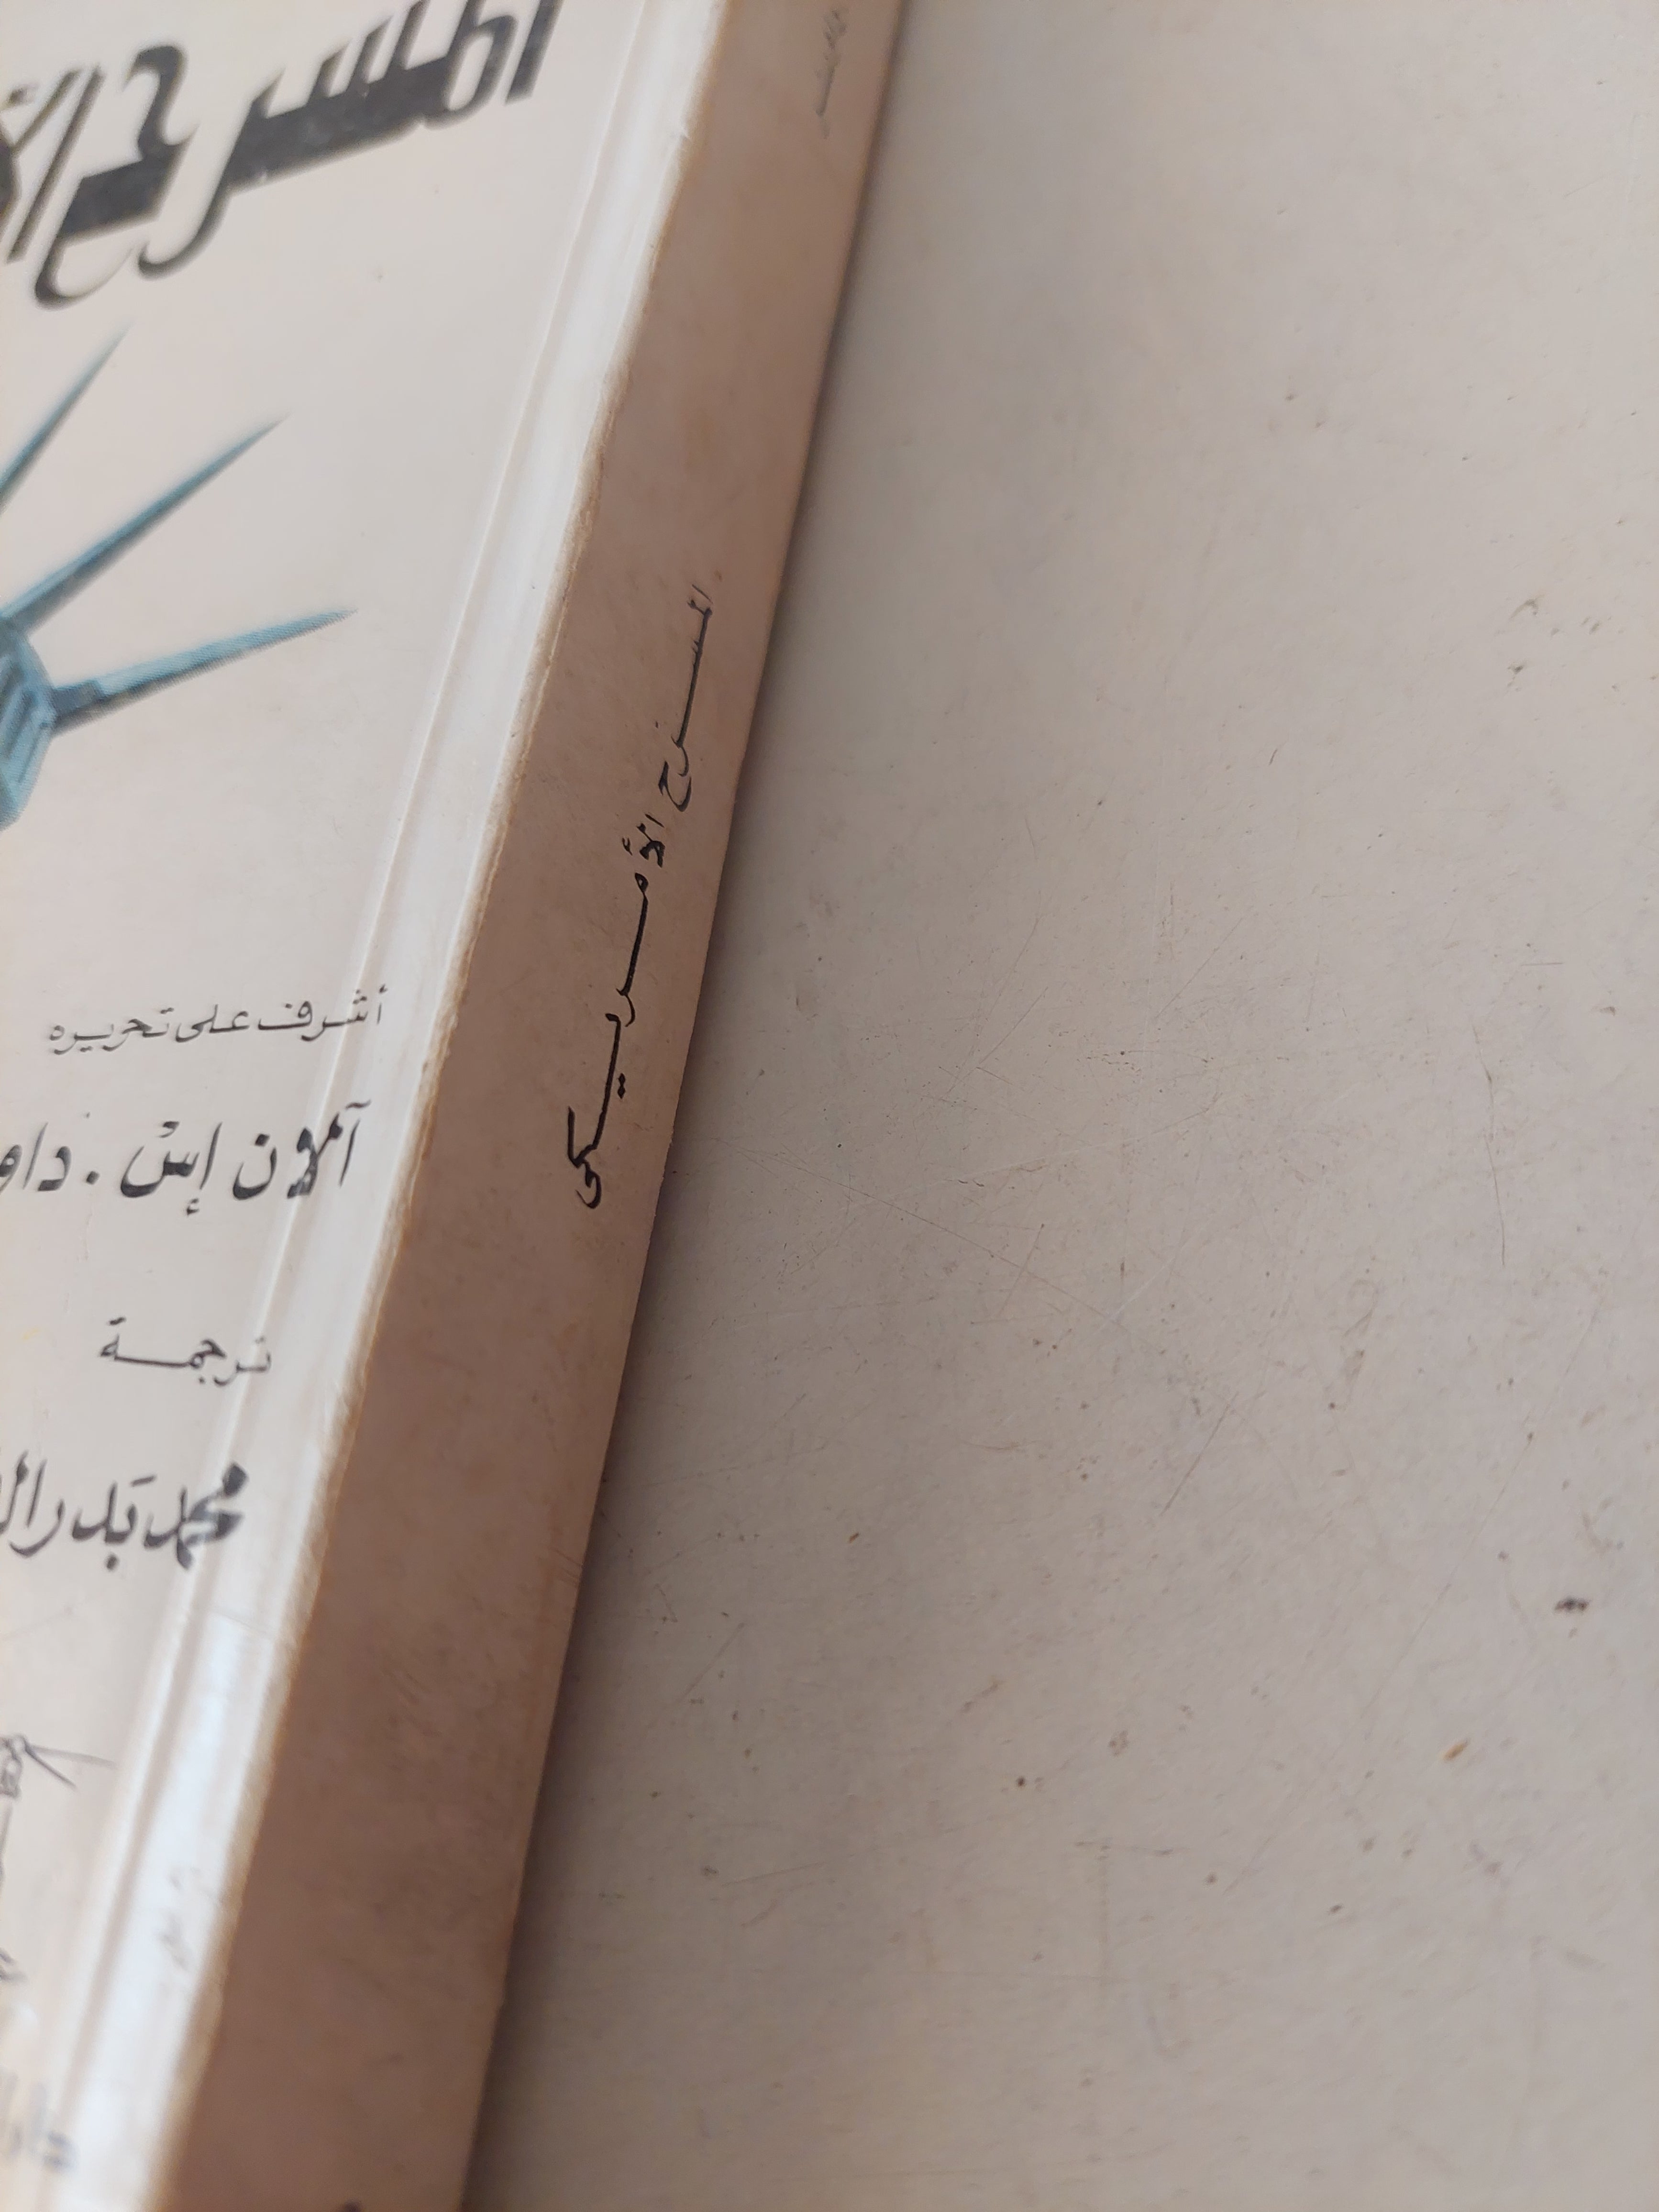 المسرح
أشرف على تحريره
آلان إس . داو
ترجمة
محمد بدر
المسرح الأمريكى